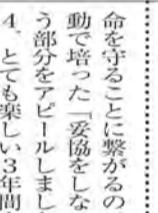 命を守ることに繋がるの
動で培った「妥協をしな
う部分をアピールしまし
４、とても楽しい３年間